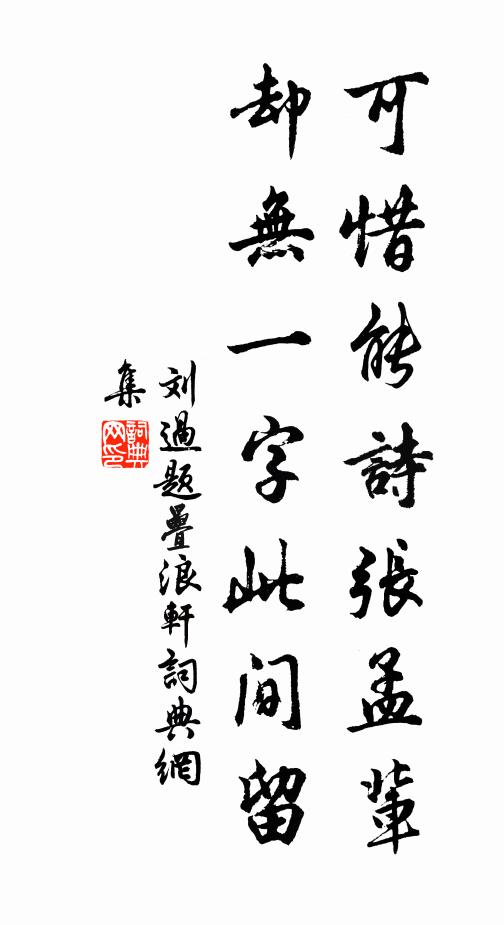 可惜能詩張孟輩
却無一字此間留
刘過題疊浪軒詞典網
集
詞典网印